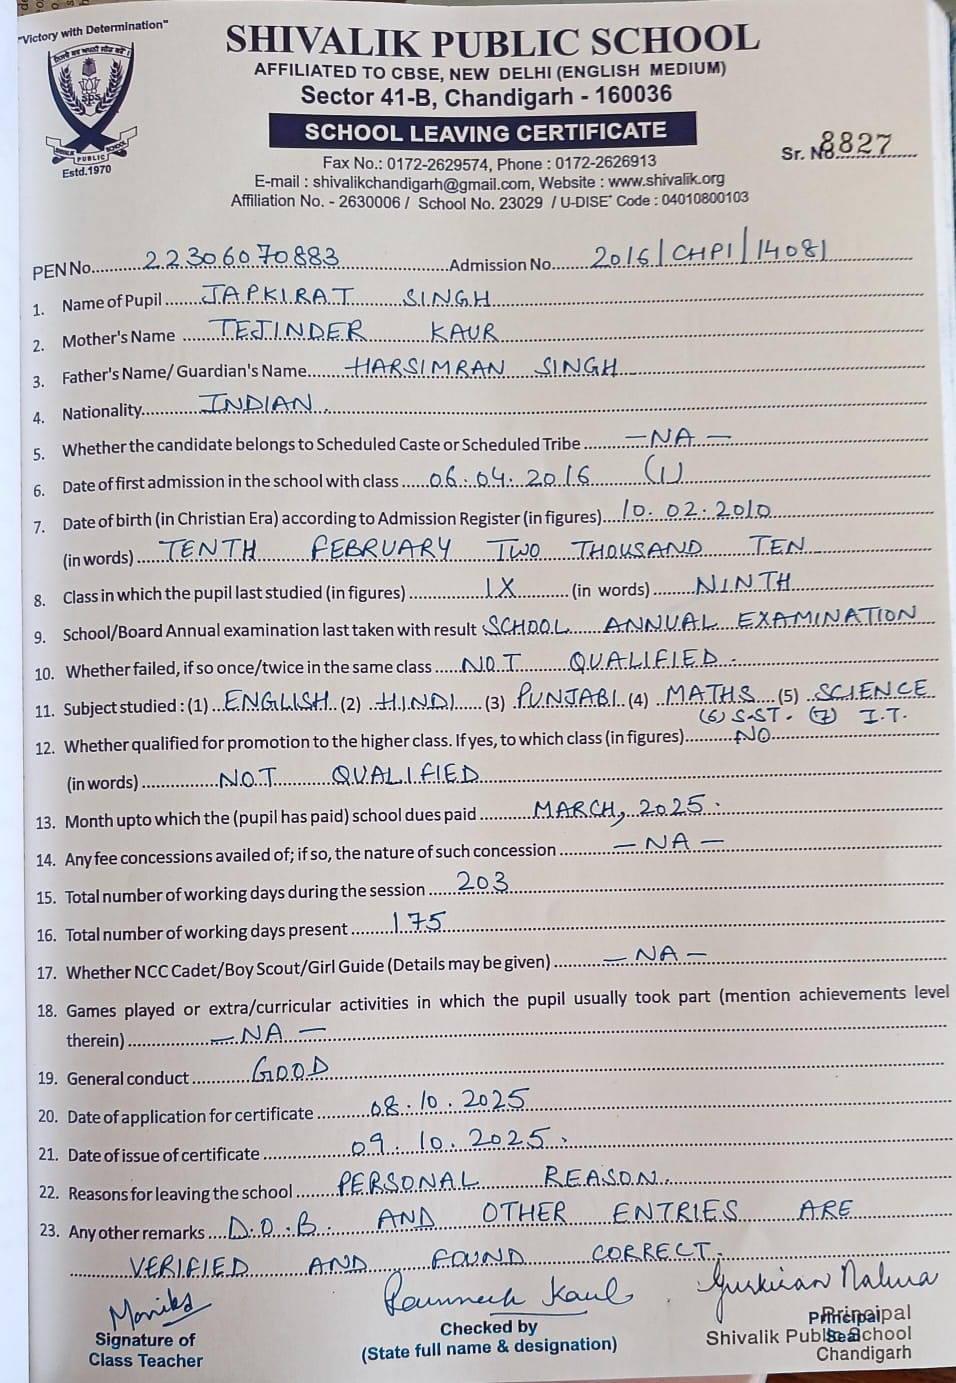 "Victory with Determination"
SPS
SHIVALIK PUBLIC SCHOOL
Estd.1970
SHIVALIK PUBLIC SCHOOL
AFFILIATED TO CBSE, NEW DELHI (ENGLISH MEDIUM)
Sector 41-B, Chandigarh - 160036
SCHOOL LEAVING CERTIFICATE
Sr. No. 8827
Fax No.: 0172-2629574, Phone : 0172-2626913
E-mail : shivalikchandigarh@gmail.com, Website : www.shivalik.org
Affiliation No. - 2630006 / School No. 23029 / U-DISE+ Code : 04010800103
PEN No. 22306070883 Admission No. 2016/CHPI/14081
1. Name of Pupil JAPKIRAT SINGH
2. Mother's Name TEJINDER KAUR
3. Father's Name/ Guardian's Name HARSIMRAN SINGH
4. Nationality INDIAN.
5. Whether the candidate belongs to Scheduled Caste or Scheduled Tribe - NA -
6. Date of first admission in the school with class 06.04.2016 (I)
7. Date of birth (in Christian Era) according to Admission Register (in figures) 10.02.2010
(in words) TENTH FEBRUARY TWO THOUSAND TEN
8. Class in which the pupil last studied (in figures) IX (in words) NINTH
9. School/Board Annual examination last taken with result SCHOOL ANNUAL EXAMINATION
10. Whether failed, if so once/twice in the same class NOT QUALIFIED.
11. Subject studied : (1) ENGLISH (2) HINDI (3) PUNJABI (4) MATHS (5) SCIENCE
(6) S.ST. (7) I.T.
12. Whether qualified for promotion to the higher class. If yes, to which class (in figures) NO
(in words) NOT QUALIFIED
13. Month upto which the (pupil has paid) school dues paid MARCH, 2025.
14. Any fee concessions availed of; if so, the nature of such concession - NA -
15. Total number of working days during the session 203
16. Total number of working days present 175
17. Whether NCC Cadet/Boy Scout/Girl Guide (Details may be given) - NA -
18. Games played or extra/curricular activities in which the pupil usually took part (mention achievements level
therein) - NA -
19. General conduct GOOD
20. Date of application for certificate 08.10.2025
21. Date of issue of certificate 09.10.2025.
22. Reasons for leaving the school PERSONAL REASON.
23. Any other remarks D.O.B. AND OTHER ENTRIES ARE
VERIFIED AND FOUND CORRECT.
Monika Kaul
Signature of Class Teacher
Checked by
(State full name & designation)
Principal
Seal
Principal
Shivalik Public School
Chandigarh